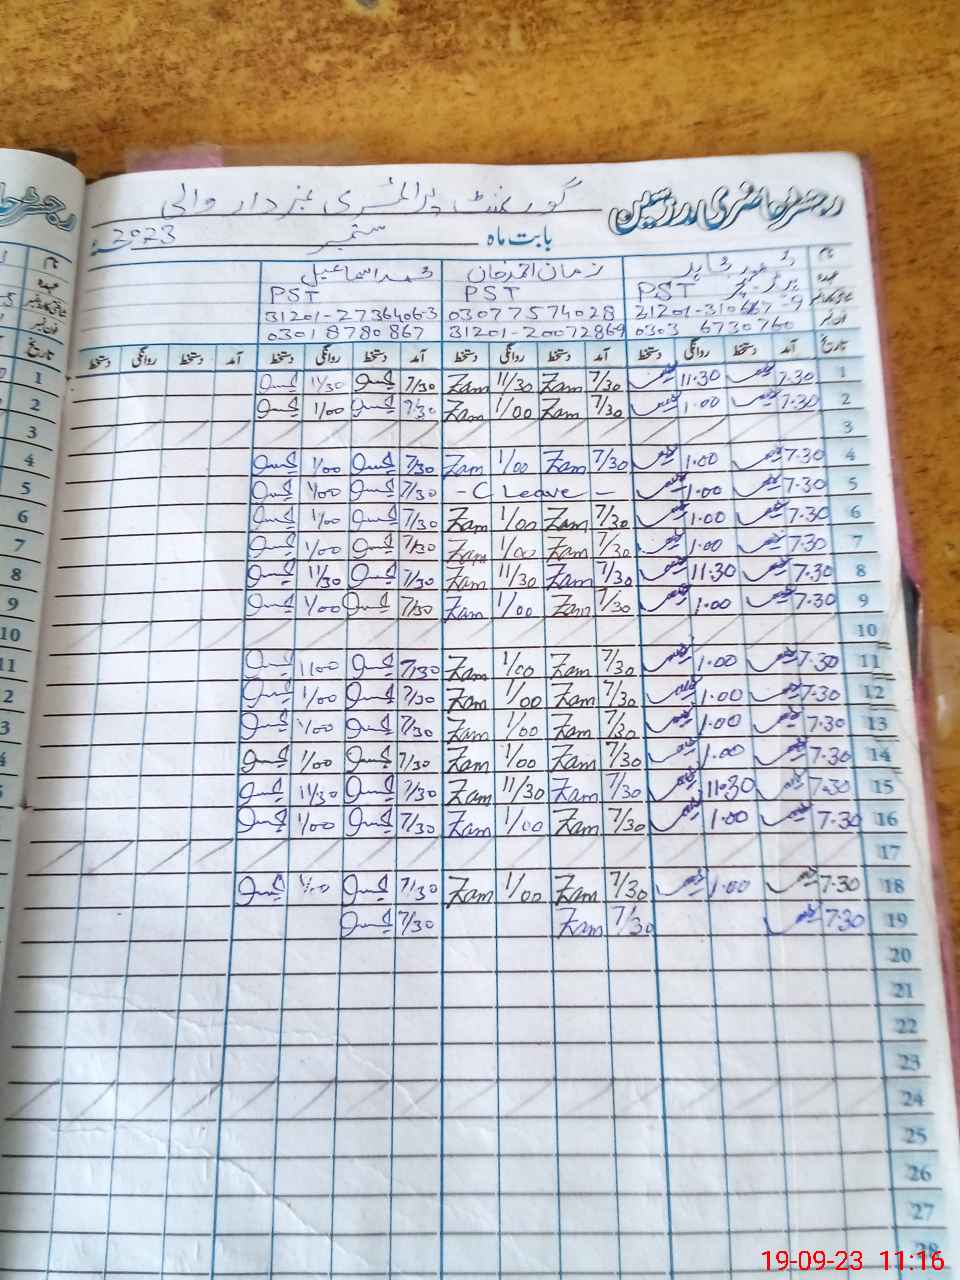 رجسٹر حاضری مدرسین گورنمنٹ پرائمری بزدار والی
بابت ماہ ستمبر 2023ء
نام زمان احمد خان محمد اسماعیل
عہدہ PST PST PST
31201-2736406-3 03077574028
فون نمبر 0303 6730760 31201-20072869 03018780867
تاریخ آمد دستخط روانگی دستخط آمد دستخط روانگی دستخط آمد دستخط روانگی دستخط آمد دستخط روانگی دستخط
1 7.30 11.30 7/30 Zam 11/30 Zam 7/30 11/30
2 7.30 1.00 7/30 Zam 1/00 Zam 7/30 1/00
3
4 7.30 1.00 7/30 Zam 1/00 Zam 7/30 1/00
5 7.30 1.00 - C Leave - 7/30 1/00
6 7.30 1.00 7/30 Zam 1/00 Zam 7/30 1/00
7 7.30 1.00 7/30 Zam 1/00 Zam 7/30 1/00
8 7.30 11.30 7/30 Zam 11/30 Zam 7/30 11/30
9 7.30 1.00 7/30 Zam 1/00 Zam 7/30 1/00
10
11 7.30 1.00 7/30 Zam 1/00 Zam 7/30 1/00
12 7.30 1.00 7/30 Zam 1/00 Zam 7/30 1/00
13 7.30 1.00 7/30 Zam 1/00 Zam 7/30 1/00
14 7.30 1.00 7/30 Zam 1/00 Zam 7/30 1/00
15 7.30 11.30 7/30 Zam 11/30 Zam 7/30 11/30
16 7.30 1.00 7/30 Zam 1/00 Zam 7/30 1/00
17
18 7.30 1.00 7/30 Zam 1/00 Zam 7/30 1/00
19 7.30 7/30 Zam 7/30
20
21
22
23
24
25
26
27
28
19-09-23 11:16